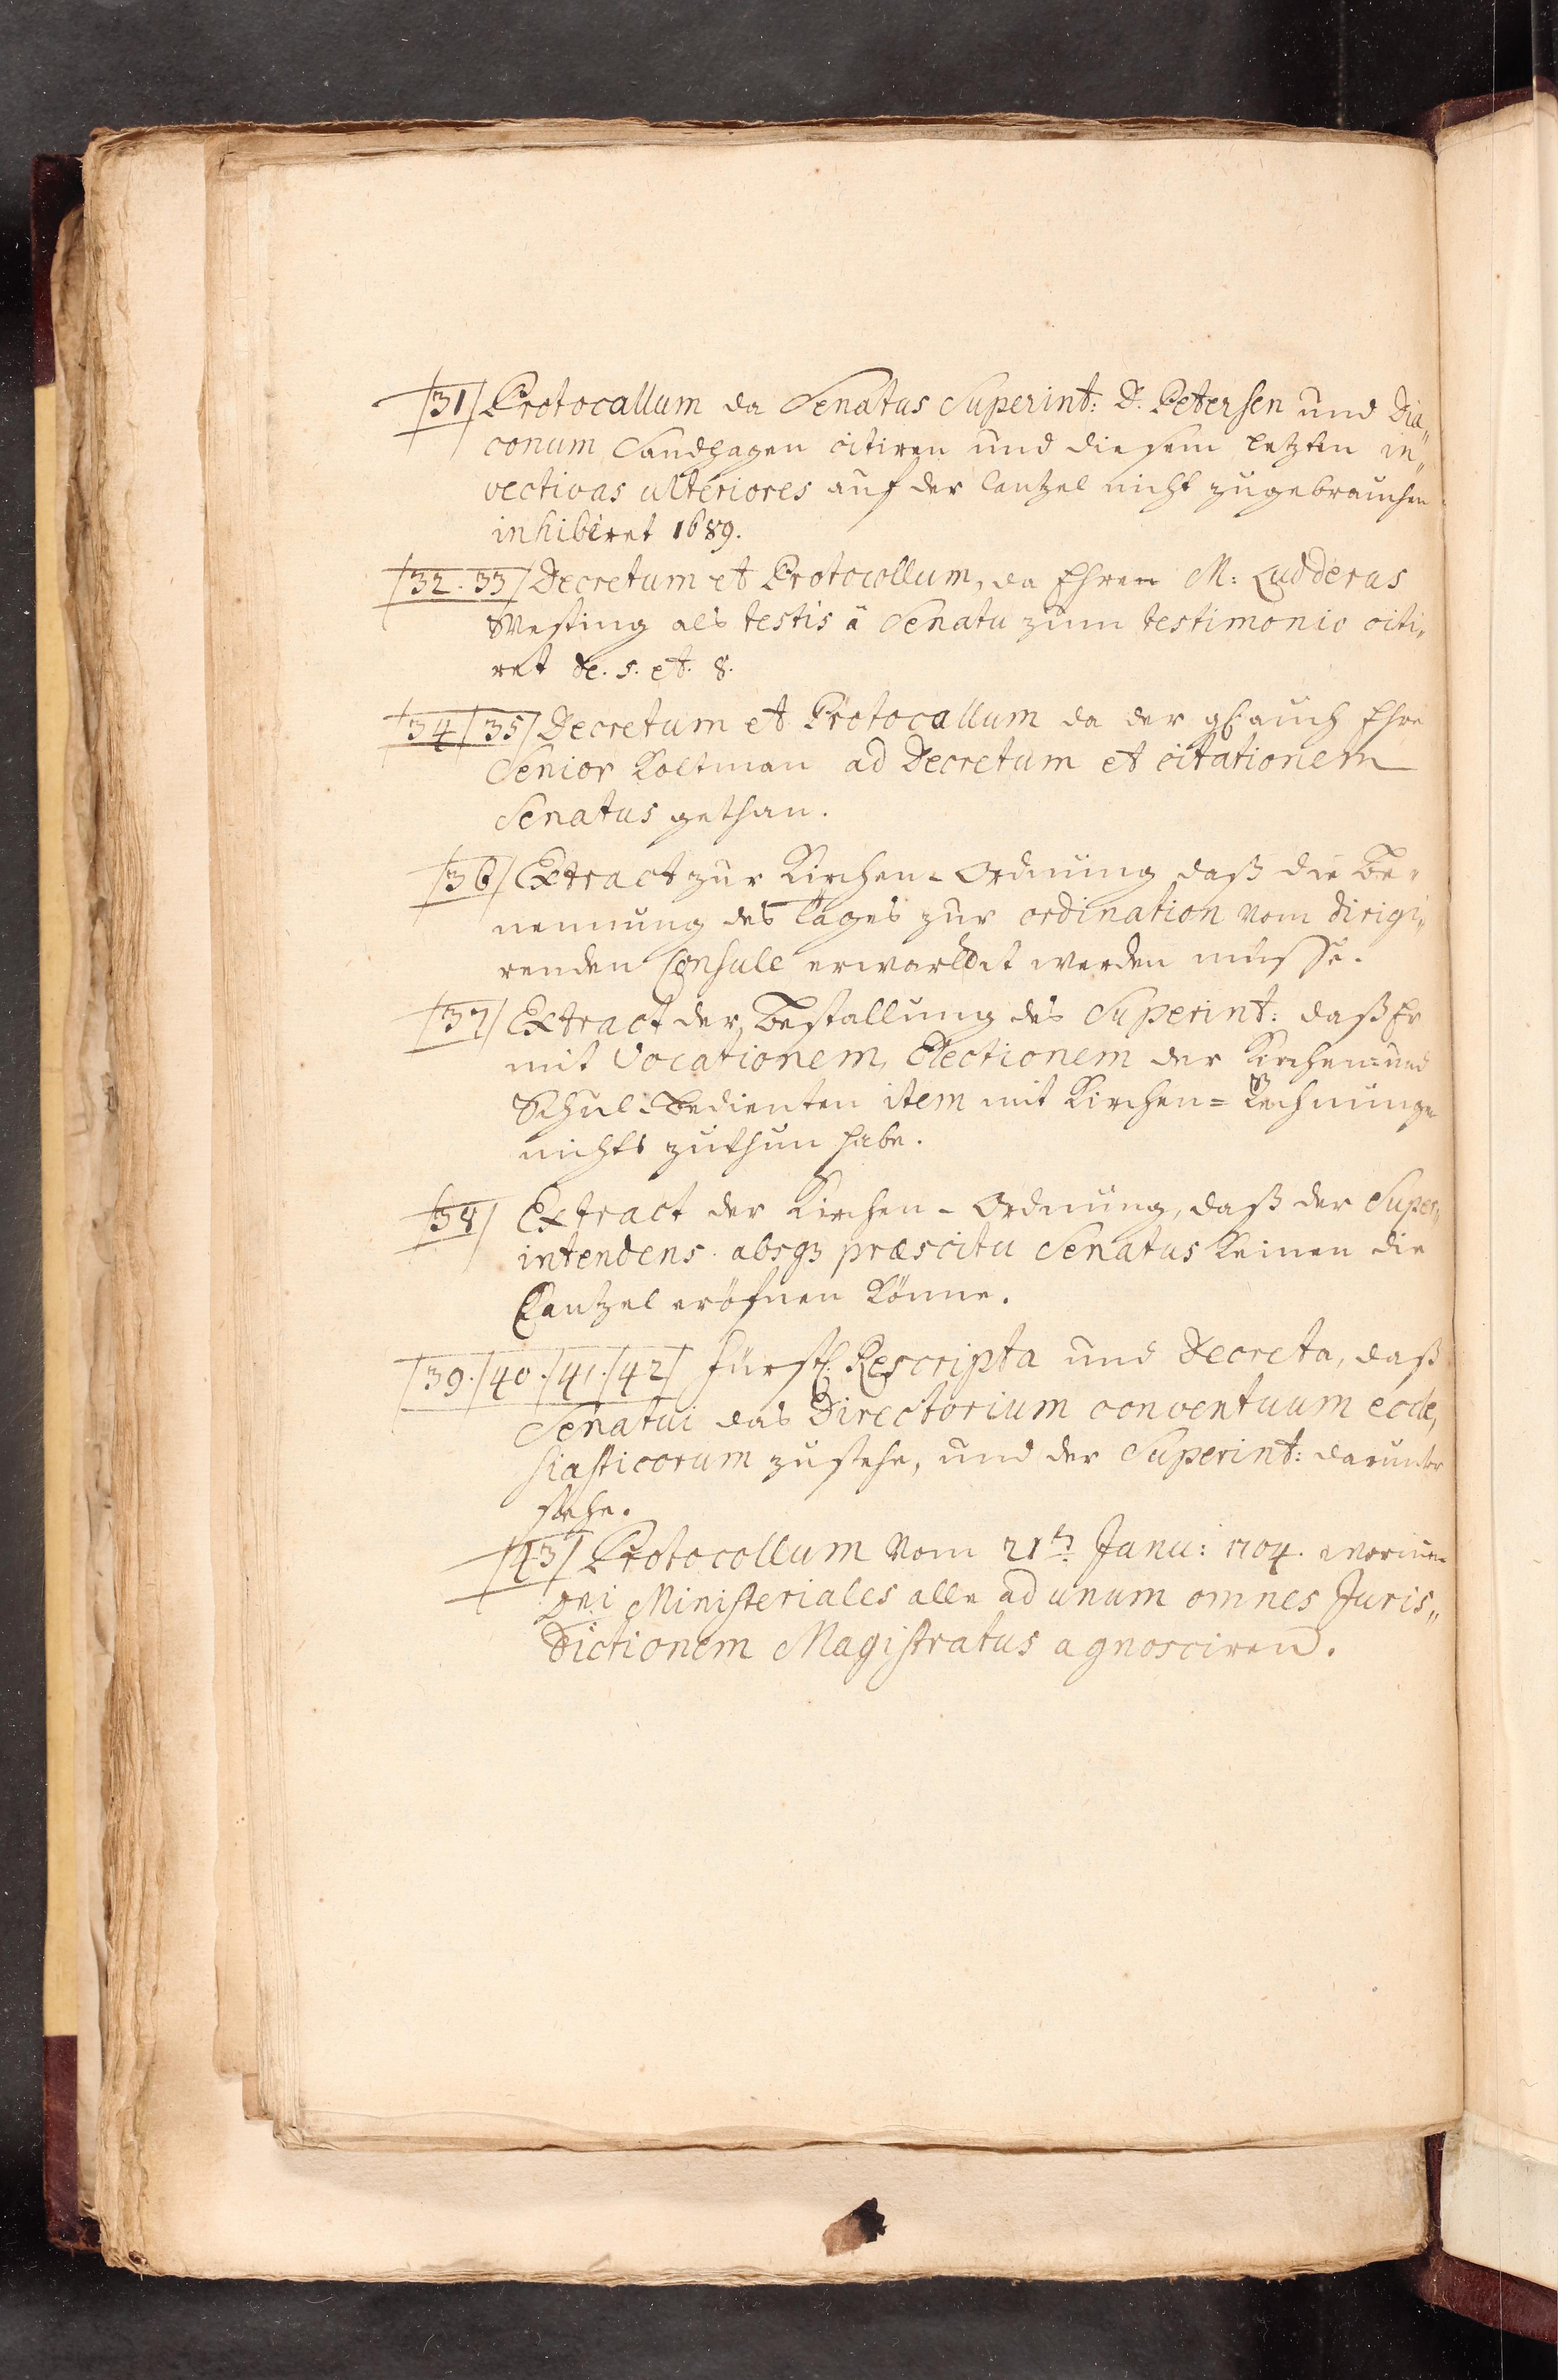 31 Protocollum da Senatus Superint: D. Petersen und Dia„
conum Sandhagen citiren und diesem letzten in„
vectivas ulteriores auf der Cantzel nicht zugebrauchen
inhibiret 1689.
32. 33 Decretum et Protocollum, da Ehren M: Ludderus
Westing als testis â Senatu zum testimonio citi„
ret de. 5. et. 8.
34 35 Decretum et Protocollum da der auch Ehrn
Senior Koltman ad Decretum et citationem
Senatus gethan.
36 Extract zur Kirchen-Ordnung daß die Be„
nennung des Tages zur ordination vom dirigi„
renden Consule erwartet werden müsse.
37 Extract der Bestallung des Superint: daß Er
mit Vocationem, Electionem der Kirchen und
Schul-Bedienten item mit Kirchen-Rechnungen
nichts zuthun habe.
38 Extract der Kirchen-Ordnung, daß der Super„
intendens absq3 præscitu Senatus keinen die
Cantzel eröfnen könne.
39. 40. 41. 42 Fürstl. Rescripta und Decreta, daß
Senatui das Directorium conventuum eccle„
siasticorum zustehe, und der Superint: darunter
stehe.
43 Protocollum vom 21ten Janu: 1704. worinnen
drei Ministeriales alle ad unum omnes Juris„
Dictionem Magistratus agnosciren.